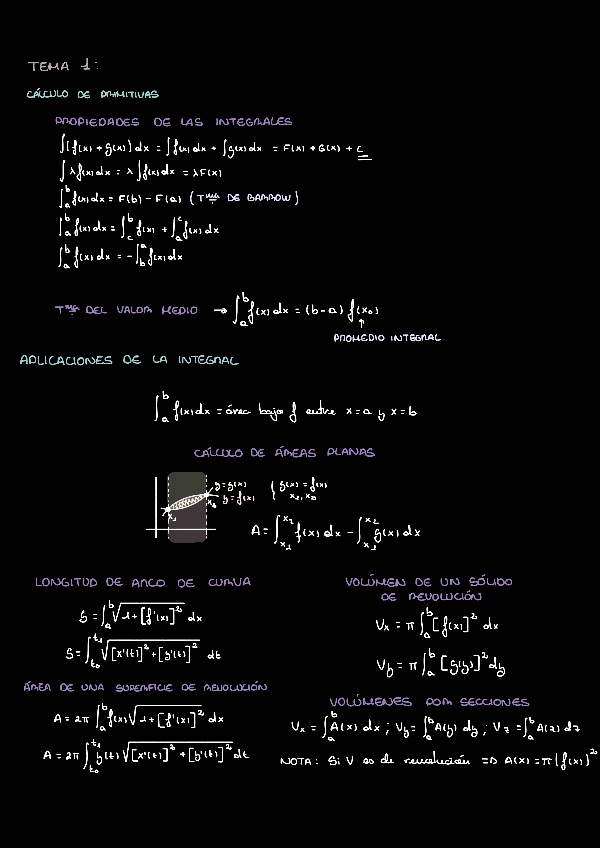 TEMA 1:
CÁLCULO DE PRIMITIVAS
PROPIEDADES DE LAS INTEGRALES
∫[f(x) + g(x)] dx = ∫f(x) dx + ∫g(x) dx = F(x) + G(x) + C
∫λf(x) dx = λ∫f(x) dx = λF(x)
∫_a^b f(x) dx = F(b) - F(a) (Tma DE BARROW)
∫_a^b f(x) dx = ∫_c^b f(x) + ∫_a^c f(x) dx
∫_a^b f(x) dx = -∫_b^a f(x) dx
Tma DEL VALOR MEDIO → ∫_a^b f(x) dx = (b-a) f(x₀)
↑
PROMEDIO INTEGRAL
APLICACIONES DE LA INTEGRAL
∫_a^b f(x) dx = área bajo f entre x=a y x=b
CÁLCULO DE ÁREAS PLANAS
y=g(x) { g(x) = f(x)
y=f(x) x₁, x₂
x₁ x₂
A = ∫_{x₁}^{x₂} f(x) dx - ∫_{x₁}^{x₂} g(x) dx
LONGITUD DE ARCO DE CURVA
S = ∫_a^b √(1+[f'(x)]²) dx
S = ∫_{t₀}^{t₁} √([x'(t)]²+[y'(t)]²) dt
VOLÚMEN DE UN SÓLIDO
DE REVOLUCIÓN
Vx = π∫_a^b [f(x)]² dx
Vy = π∫_a^b [g(y)]² dy
ÁREA DE UNA SUPERFICIE DE REVOLUCIÓN
A = 2π ∫_a^b f(x) √(1+[f'(x)]²) dx
A = 2π ∫_{t₀}^{t₁} y(t) √([x'(t)]² + [y'(t)]²) dt
VOLÚMENES POR SECCIONES
Vx = ∫_a^b A(x) dx ; Vy = ∫_a^b A(y) dy ; Vz = ∫_a^b A(z) dz
NOTA: Si V es de revolución => A(x) = π[f(x)]²